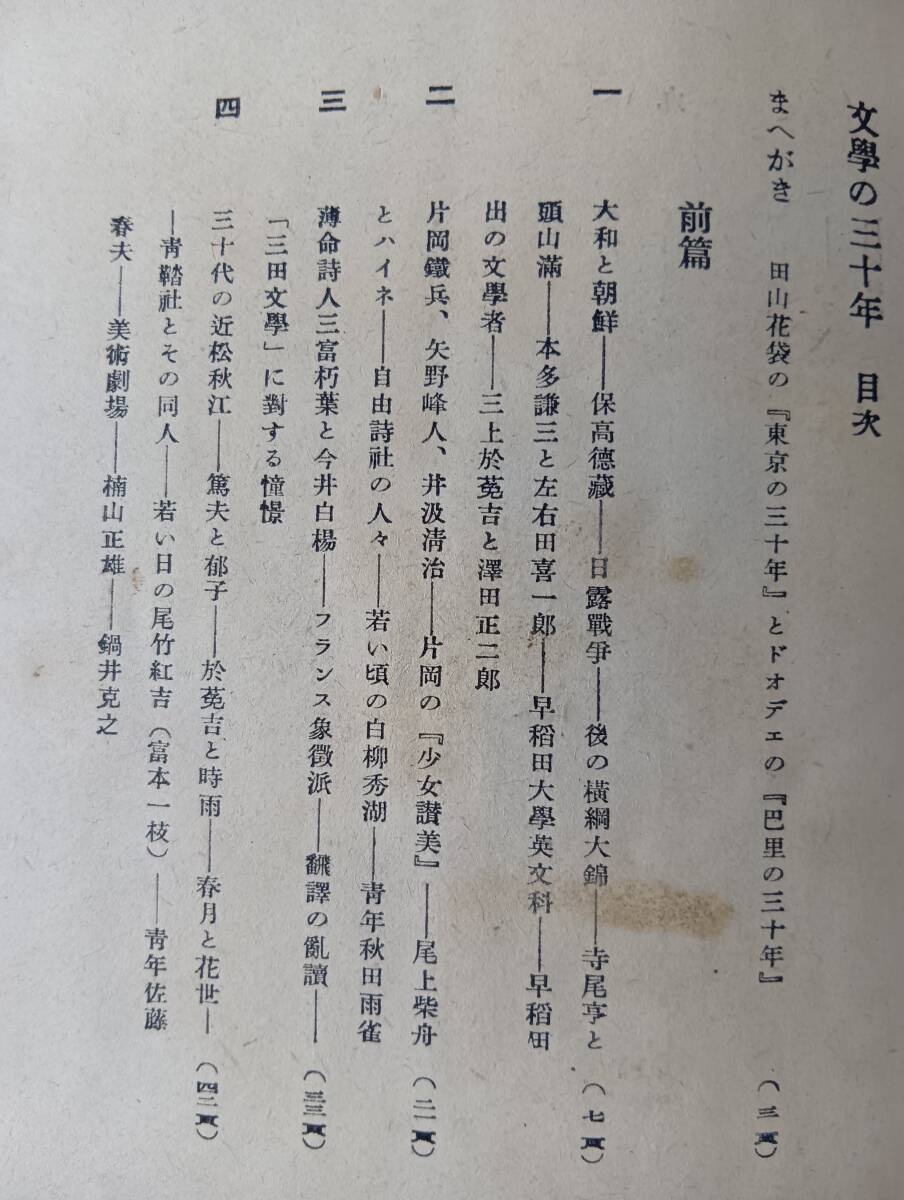 文學の三十年 目次
まへがき 田山花袋の『東京の三十年』とドオデエの『巴里の三十年』 (三頁)
前篇
一 大和と朝鮮――保高德藏――日露戰爭――後の橫綱大錦――寺尾亨と (七頁)
頭山滿――本多謙三と左右田喜一郎――早稻田大學英文科――早稻田
出の文學者――三上於菟吉と澤田正二郎
二 片岡鐵兵、矢野峰人、井汲淸治――片岡の『少女讃美』――尾上柴舟 (二一頁)
とハイネ――自由詩社の人々――若い頃の白柳秀湖――靑年秋田雨雀
三 薄命詩人三富朽葉と今井白楊――フランス象徵派――飜譯の亂讀―― (三三頁)
「三田文學」に對する憧憬
四 三十代の近松秋江――篤夫と郁子――於菟吉と時雨――春月と花世― (四二頁)
―靑鞜社とその同人――若い日の尾竹紅吉(富本一枝)――靑年佐藤
春夫――美術劇場――楠山正雄――鍋井克之